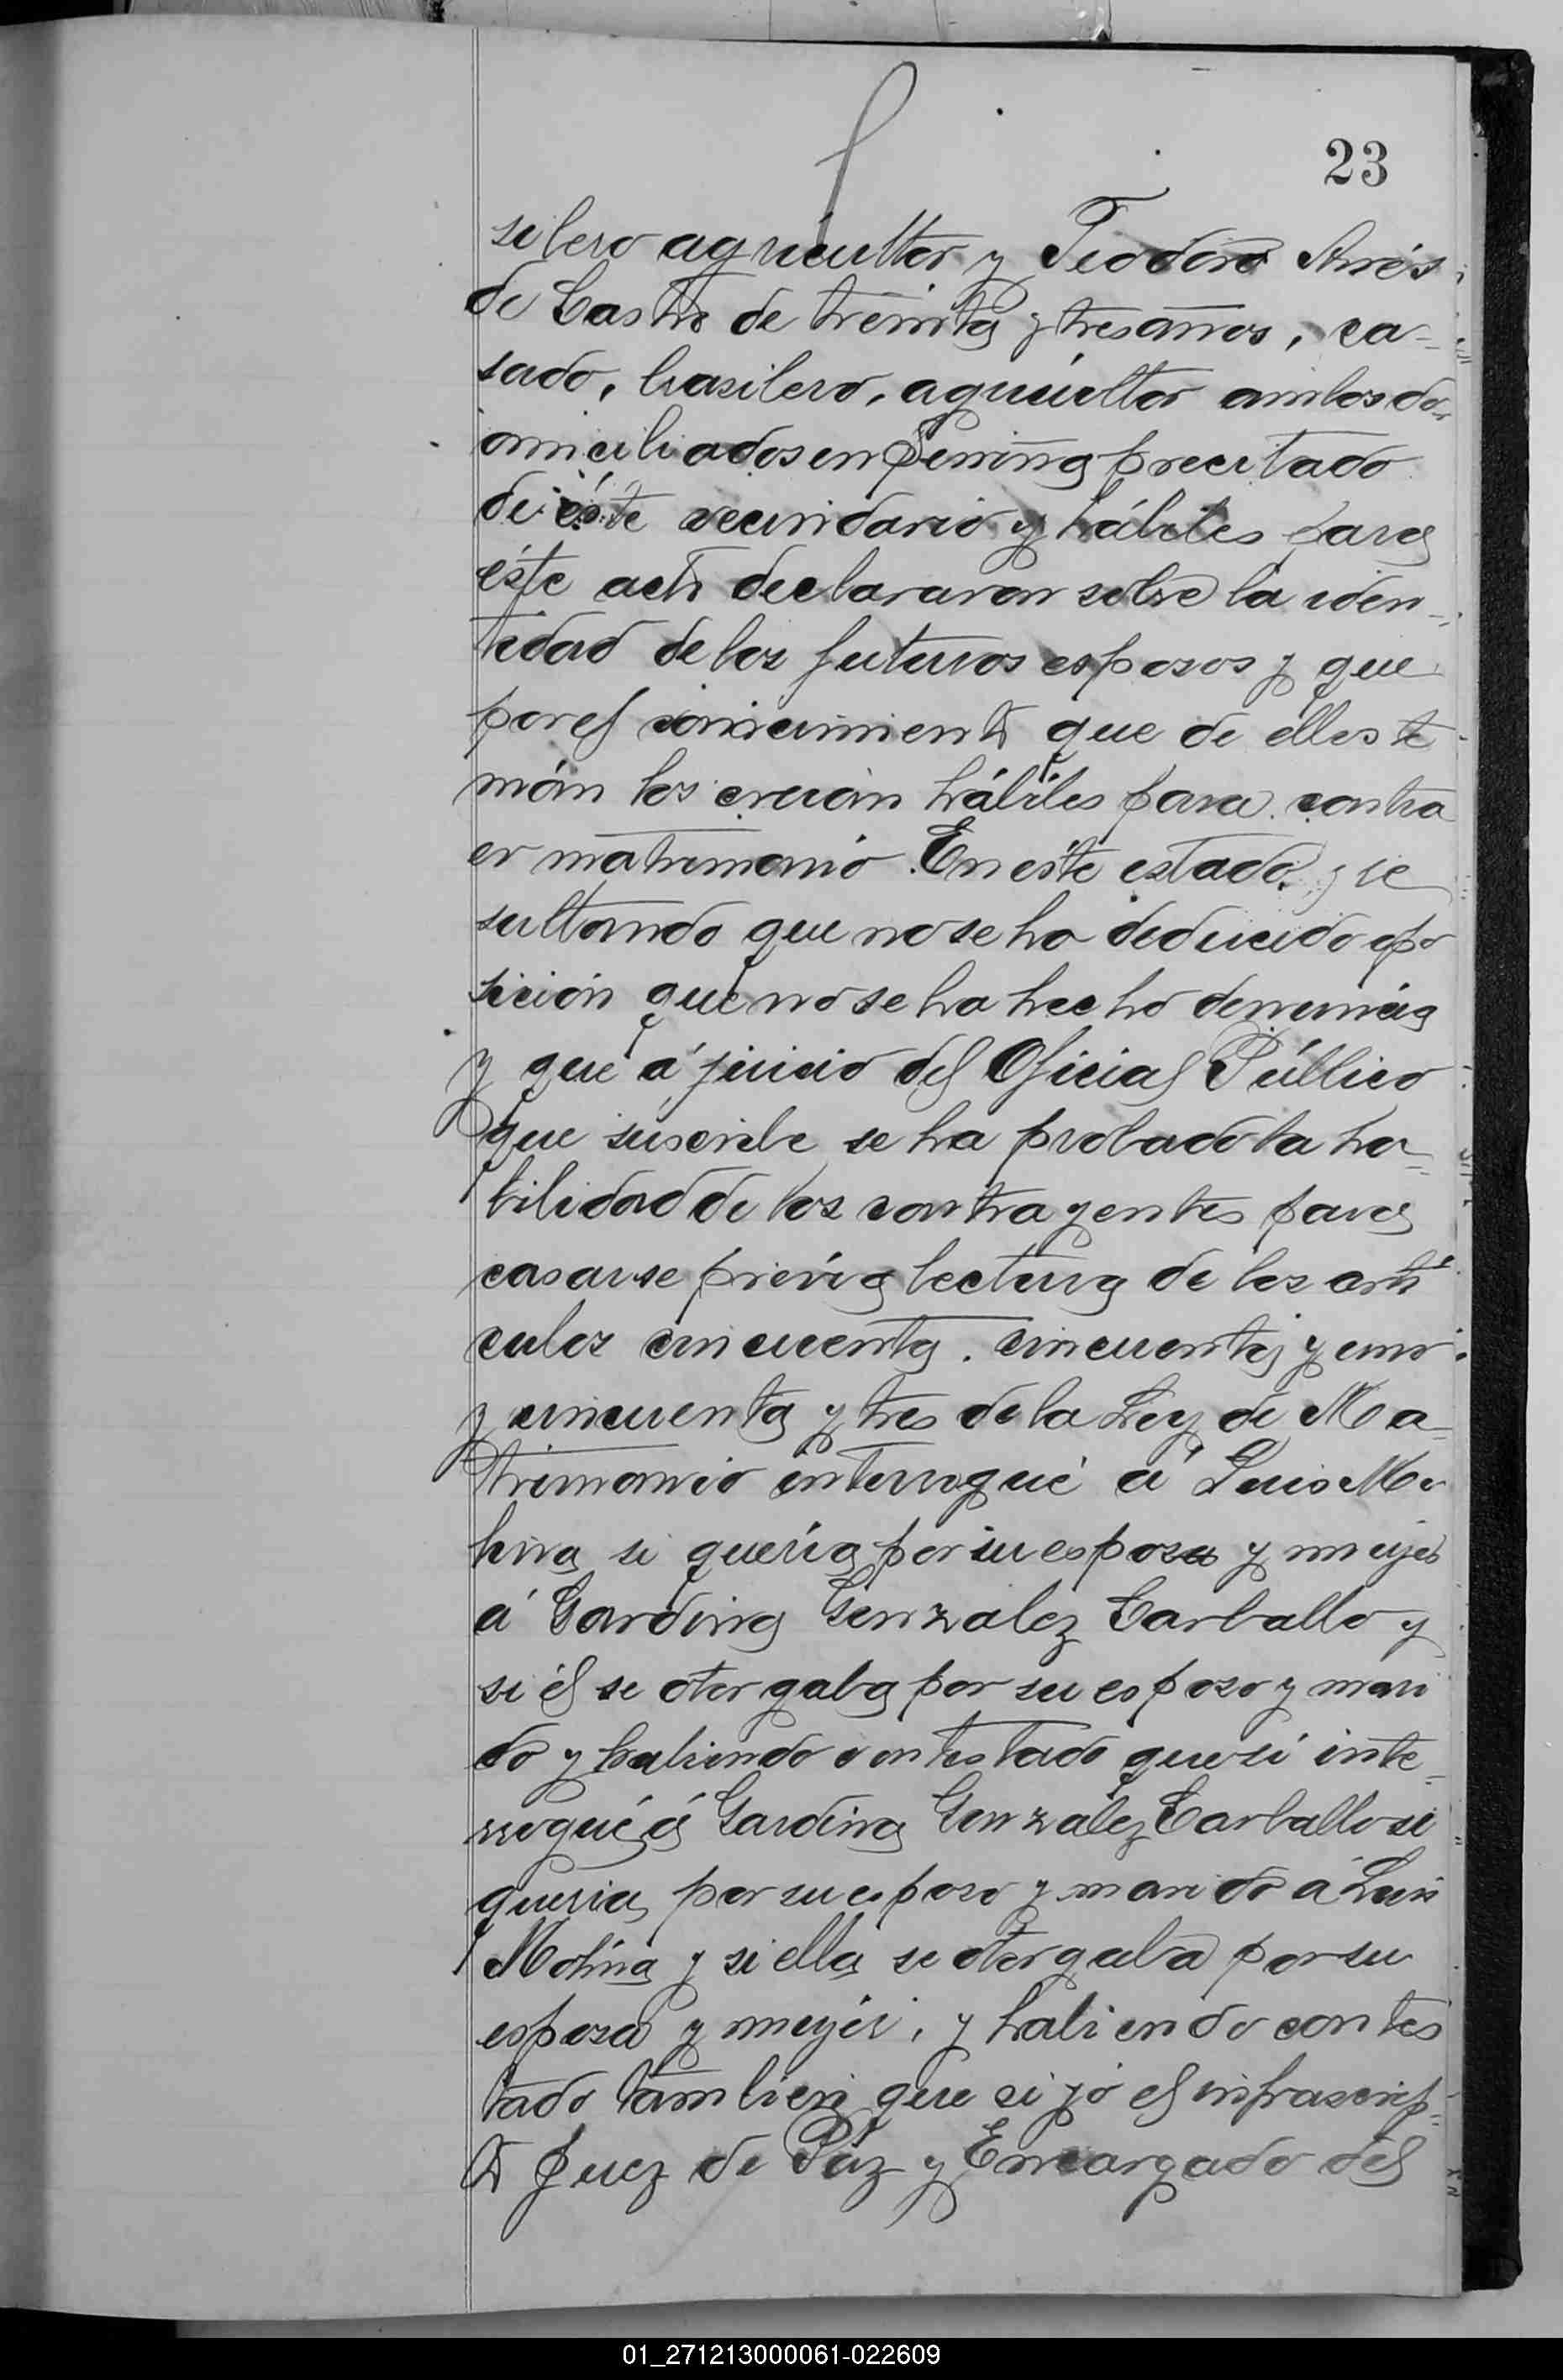 23
silero agricultor y Teodoro Airés
de Castro de treinta y tres años, ca-
sado, brasilero, agricultor ambos do-
miciliados en precitado
de éste vecindario y hábiles para
éste acto declararon sobre la iden-
tidad de los futuros esposos y que
por el conocimiento que de ellos te
nian los creian hábiles para contra
er matrimonio. En éste estado y re
sultando que no se ha deducido opo
sición que no se ha hecho denuncia
y que á juicio del Oficial Público
que suscribe se ha probado la ha-
bilidad de los contrayentes para
casarse prévia lectura de los artí
culos cincuenta, cincuenta y uno
y cincuenta y tres de la Ley de Ma-
trimonio interrogué á Luis Mo
lina si quería por su esposa y mujer
á Gardina Gonzalez Carballo y
si él se otorgaba por su esposo y mari
do y habiendo contestado que sí inte-
rrogué á Gardina Gonzalez Carballo si
queria por su esposo y marido á Luis
Molina y si ella se otorgaba por su
esposa y mujér, y habiendo contes
tado tambien que si yó el infrascrip-
to Juez de Páz y Encargado del
01_271213000061-022609